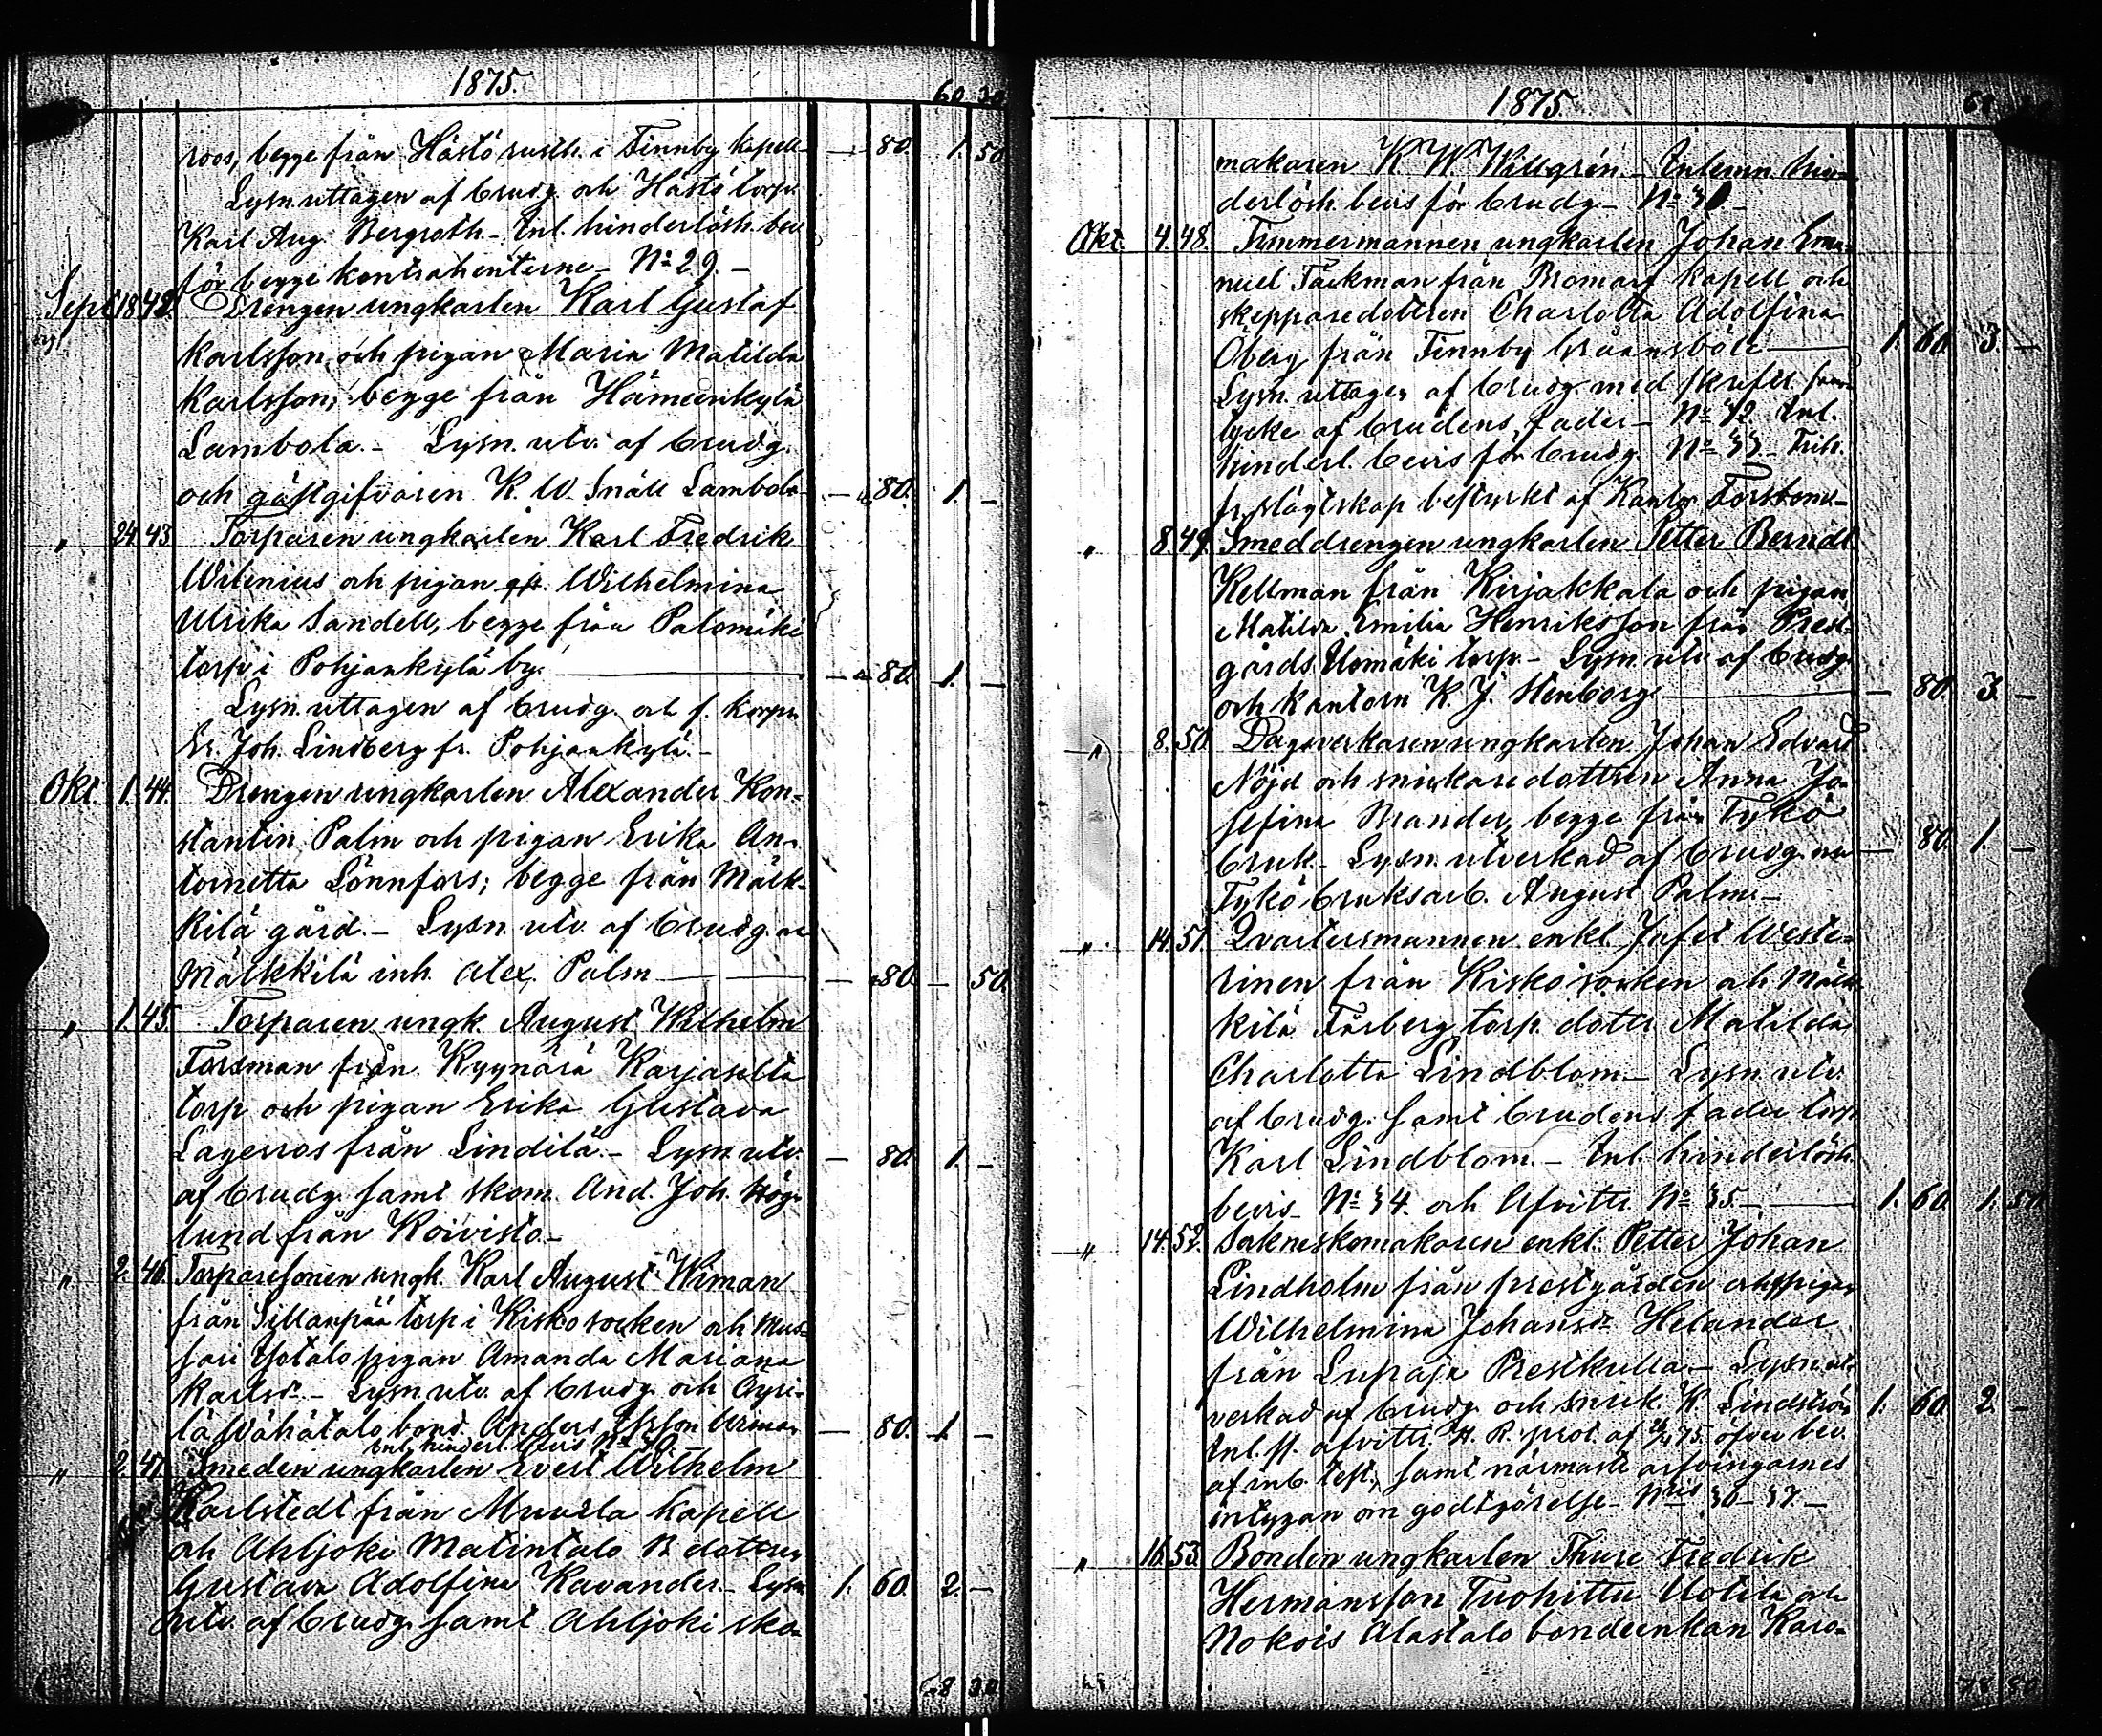 1875.
60. 30
roos, begge från Hästö rusth. i Finnby kapell — 80. 1. 50
Lysn. uttagen af brudg. och Hästö torp.
Karl Aug. Bergroth – Inl. hinderlösh. bev.
för begge kontrahenterne – No 29. –
Sept. 18. 42. Drengen ungkarlen Karl Gustaf
Karlsson och pigan Maria Matilda
Karlsson, begge från Hämeenkylä
Lambola. – Lysn. utv. af brudg.
och gästgifvaren K. W. Snäll Lambola – 80. 1. –
" 24. 43. Torparen ungkarlen Karl Fredrik
Wilenius och pigan Wilhelmina
Ulrika Sandell, begge från Palomäki
torp i Pohjankylä by. — 80. 1. –
Lysn. uttagen af brudg. och f. korpr.
Er. Joh. Lindberg fr. Pohjankylä. –
Okt. 1. 44. Drengen ungkarlen Alexander Kon-
stantin Palm och pigan Erika An-
toinetta Lönnfors; begge från Märk-
kilä gård. – Lysn. utv. af brudg. och
Märkkilä inh. Alex. Palm — 80. – 50.
" 1. 45. Torparen ungk. August Wilhelm
Forsman från Kyynärä Karjasilta
torp och pigan Erika Gustava
Lagerros från Lindilä. – Lysn. utv. – 80. 1. –
af brudg. samt skom. And. Joh. Hög-
lund från Koivisto. –
" 2. 46. Torparesonen ungk. Karl August Wiman
från Sillanpää torp i Kisko socken och Mus-
sari Ylötalo pigan Amanda Mariana
Karlsdr. – Lysn. utv. af brudg. och
Wähätalo bond. Anders – 80. 1. –
Inl. hinderl. bevis No
" 2. 47. Smeden ungkarlen Evert Wilhelm
Karlstedt från Muurla kapell
och Ahljoki Matintalo B. dottren
Gustava Adolfina Kavander. – Lysn. 1. 60. 2. –
utv. af brudg. samt Ahljoki sko-
68 30
1875.
makaren K. W. Willgrén. – Inlemn. hin-
derlösh. bevis för brudg. – No
Okt. 4. 48. Timmermannen ungkarlen Johan Ema-
nuel Täckman från Bromarf kapell och
skepparedottren Charlotta Adolfina
Öberg från Finnby Bråansböle — 1. 60. 3. –
Lysn. uttagen af brudg. med skriftl. sam-
tycke af brudens fader – No 32. Inl.
hinderl. bevis för brudg. No 33. – Frih.
fr. slägtskap bestyrkt af Kantor
" 8. 49. Smeddrengen ungkarlen Petter Berndt
Kellman från Kirjakkala och pigan
Matilda Emilia Henriksson från Prest-
gårds Uomäki torp. – Lysn. utv. af brudg.
och kantorn K. J. Stenborg — 80. 3. –
" 8. 50. Dagsverkaren ungkarlen Johan Edvard
Nöjd och snickaredottren Anna Jo-
sefina Brander, begge från Tykö
bruk. – Lysn. utverkad af brudg. och — 80. 1. –
Tykö bruksarb. August Palm. –
" 14. 51. Qvartersmannen enkl. Jafet Weste-
rinen från Kisko socken och Märk-
kilä Färberg torp. dottr. Matilda
Charlotta Lindblom. – Lysn. utv.
af brudg. samt brudens fader torp.
Karl Lindblom. – Inl. hinderlösh.
bevis No 34. och Afvittr. No 35. — 1. 60. 1. 50
" 14. 52. Sockneskomakaren enkl. Petter Johan
Lindholm från prestgården och pigan
Wilhelmina Johansdr. Helander
från Lupaja Prestkulla. – Lysn. ut-
verkad af brudg. och snick. K. Lindström 1. 60. 2. –
Inl. afvittr. H. R. prot. af 75. öfver bev.
af inb. test., samt närmaste arfvingarnes
intygan om godtgörelse – Nris 36–37. –
" 16. 53. Bonden ungkarlen Thure Fredrik
Hermansson Tuohittu Uotila och
Nokois Alastalo bondeenkan Karo-
78 80